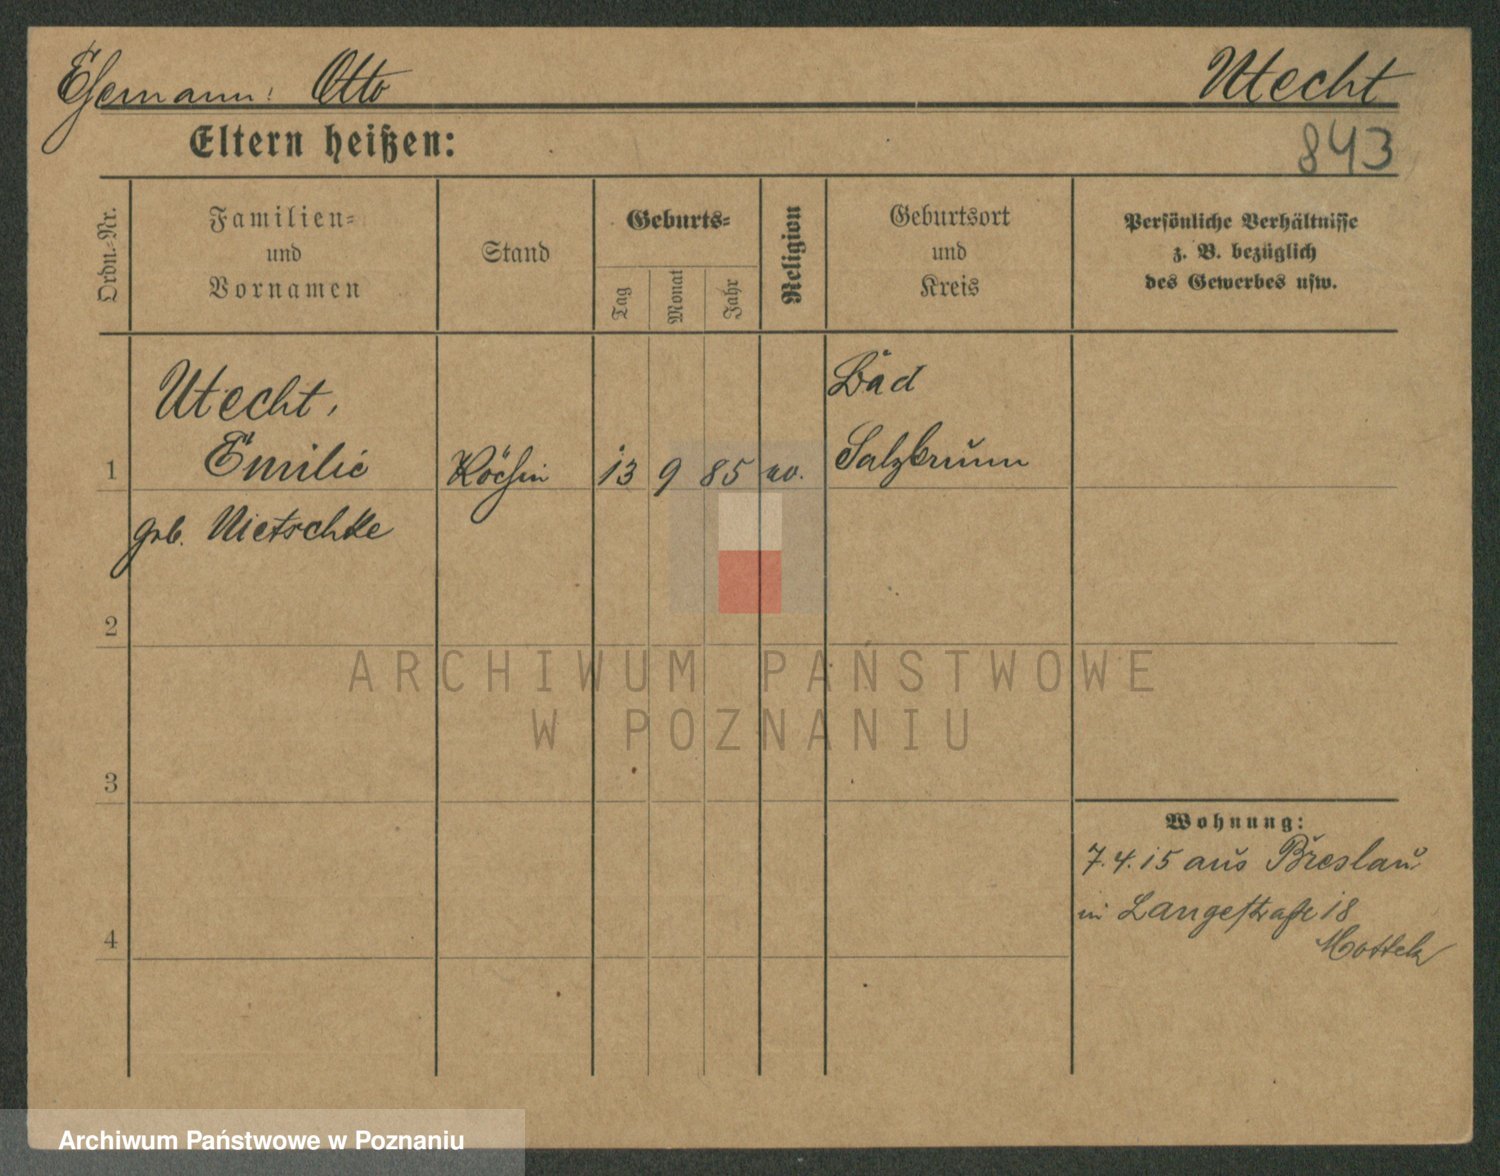 Ehemann: Otto Utecht
Eltern heißen:
843
Ordn.-Nr.
Familien-
und
Vornamen
Stand
Geburts-
Tag
Monat
Jahr
Religion
Geburtsort
und
Kreis
Persönliche Verhältnisse
z. B. bezüglich
des Gewerbes usw.
Utecht,
Emilie
geb. Nietschke
1
Köchin
13 9 85 ev.
Bad
Salzbrunn
2
3
4
Wohnung:
7.4.15 aus Breslau
in Langestraße 18
Mottek
ARCHIWUM PAŃSTWOWE
W POZNANIU
Archiwum Państwowe w Poznaniu